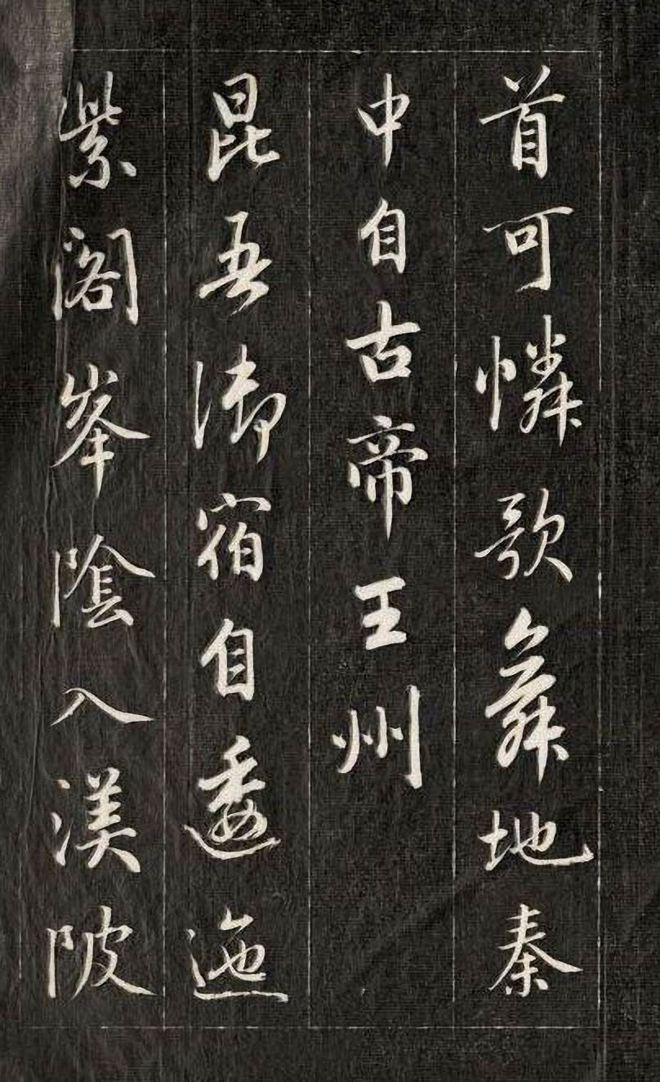 首可憐歌舞地秦
中自古帝王州
昆吾御宿自逶迤
紫閣峯陰入渼陂